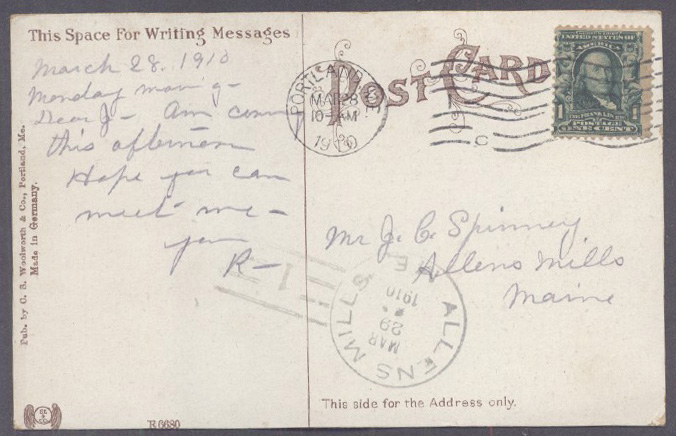 This Space For Writing Messages
March 28. 1910
Monday morning -
Dear J - Am coming
this afternoon
Hope you can
meet me -
your
R -
POST CARD
PORTLAND, ME
MAR 28
10 AM
1910
C
UNITED STATES OF AMERICA
1 1
FRANKLIN
POSTAGE
ONE CENT
Mr J. C. Spinney
Allens Mills
Maine
ALLENS MILLS, ME
MAR
29
1910
1
This side for the Address only.
Pub. by C. S. Woolworth & Co., Portland, Me.
Made in Germany.
R 6680